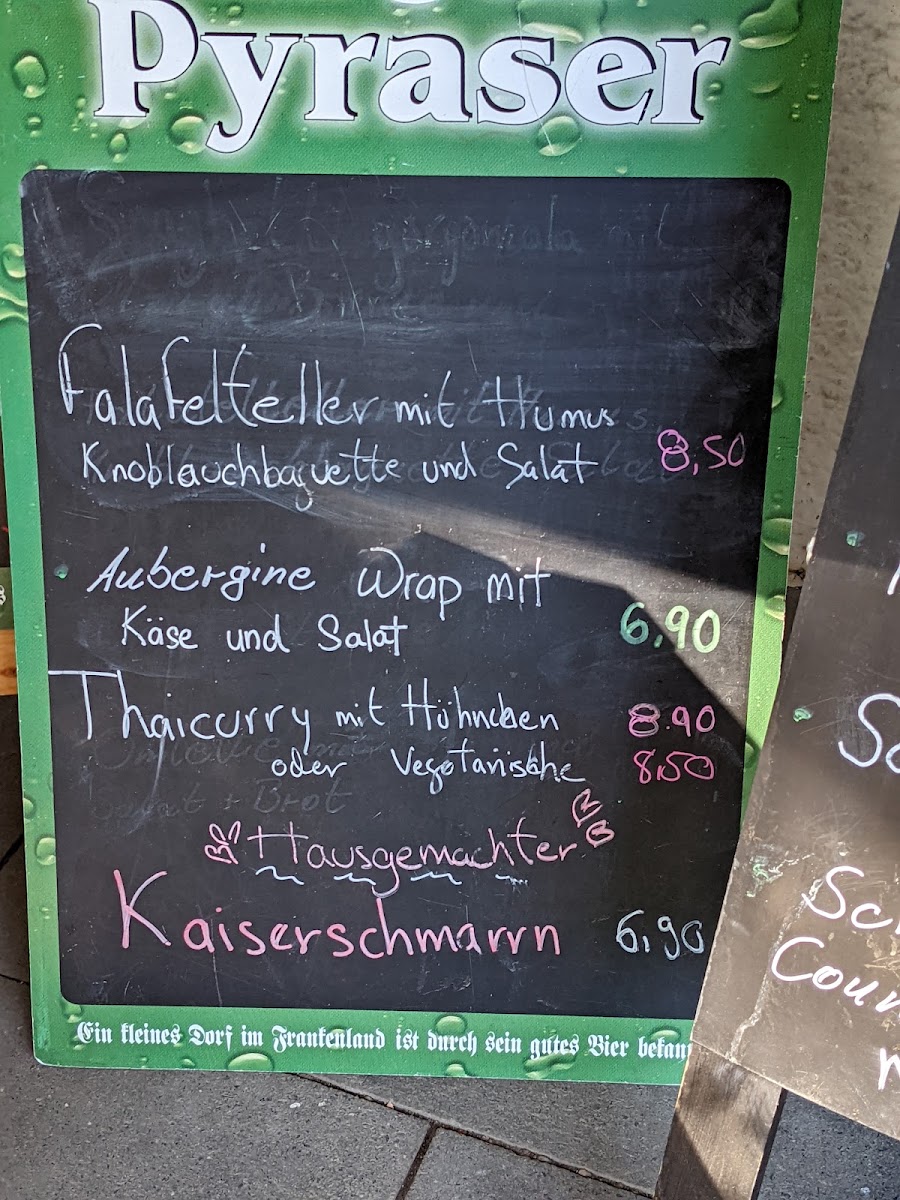 Pyraser
Falafelteller mit Humus
Knoblauchbaguette und Salat 8,50
Aubergine Wrap mit
Käse und Salat 6,90
Thaicurry mit Hühnchen 8.90
oder Vegetarische 8,50
Hausgemachter
Kaiserschmarrn 6,90
Ein kleines Dorf im Frankenland ist durch sein gutes Bier bekan
Sc
Cour